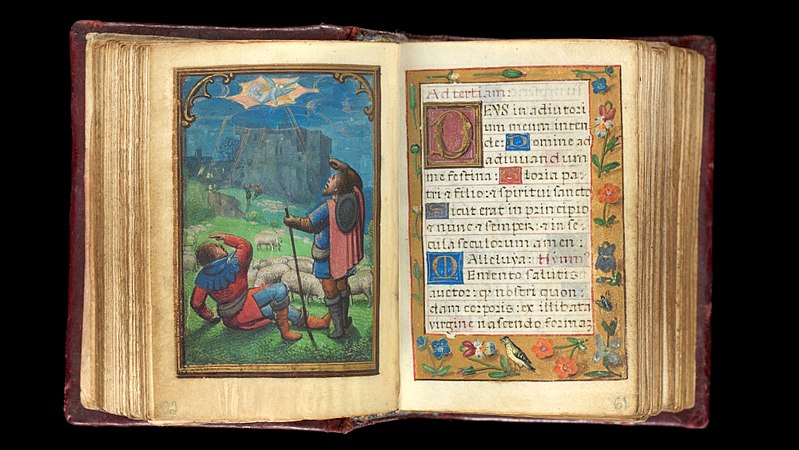 Ad tertiam:
DEVS in adiutori
um meum inten
de: Domine ad
adiuvandum
me festina: Gloria pa
tri ⁊ filio: ⁊ spiritui sancto
Sicut erat in principio
⁊ nunc ⁊ semper: ⁊ in se
cula seculorum amen:
Alleluya: Hym
Memento salutis
auctor: q nostri quon
dam corporis: ex illibata
virgine nascendo forma
61